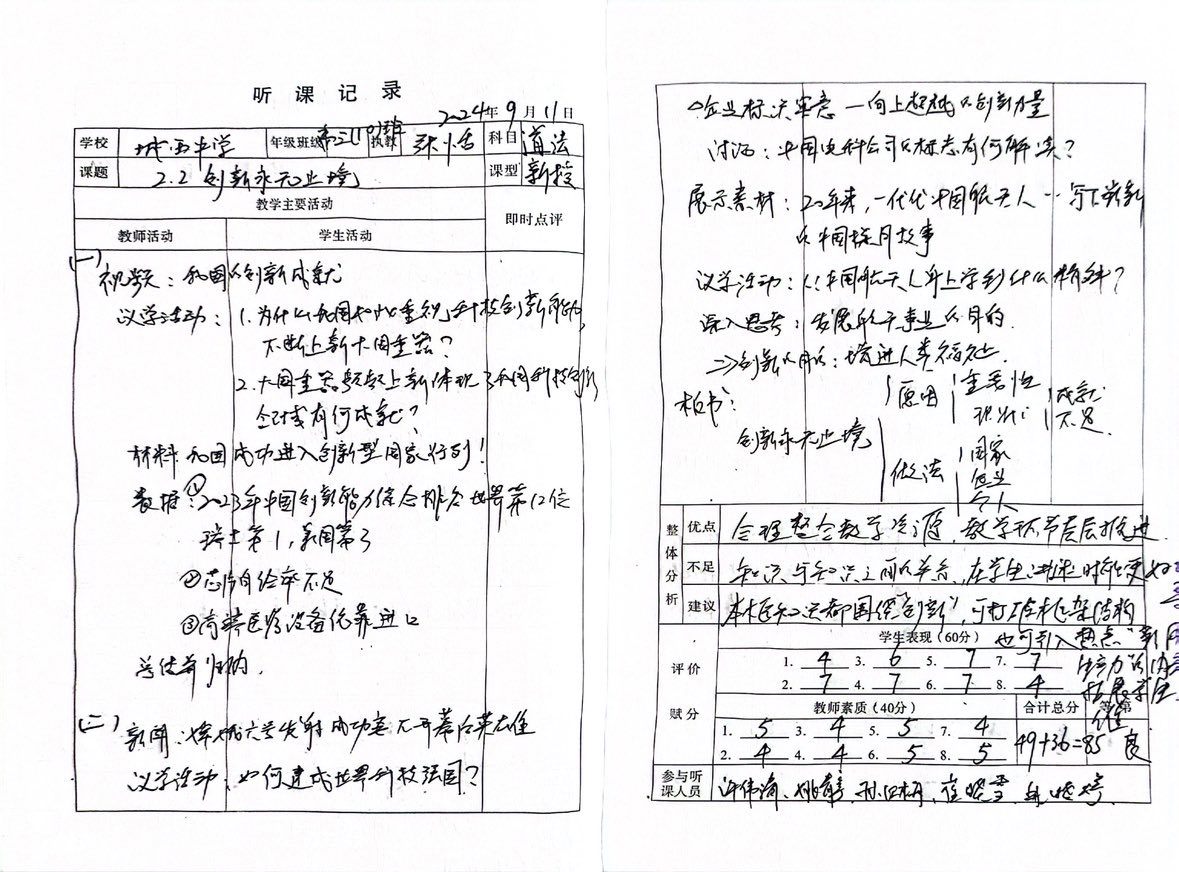 听课记录
2024年9月11日
学校 城西中学 年级班级 (10)班 执教 张 科目 道法
课题 2.2 创新永无止境 课型 新授
教学主要活动 即时点评
教师活动 学生活动
(一)
视频:我国的创新成就
议学活动:1.为什么我国如此重视科技创新
不断上新大国重器?
2.大国重器频频上新体现了我国科技创新
领域有何成就?
材料 我国成功进入创新型国家行列!
数据:①2023年中国创新能力综合排名世界第12位
瑞士第1,美国第3
②芯片自给率不足
③高端医疗设备依靠进口
学生 归纳.
(二)新闻:嫦娥六号发射成功 幕后英雄
议学活动:如何建成世界科技强国?
企业标识寓意—向上超越的创新力量
讨论:中国 科公司的标志有何解读?
展示素材:20年来,一代代中国航天人…写下崭新
的中国探月故事
议学活动:从中国航天人身上学到什么精神?
深入思考:发展航天事业的目的.
⇒创新的目的:增进人类福祉.
板书:
创新永无止境
原因 重要性
现状 成就
不足
做法 国家
企业
个人
整体分析
优点 合理整合教学资源,教学环节层层推进
不足 知识与知识之间的关系,在学生讲述时能更好
建议 本框知识都围绕“创新”,可打 框架结构
也可引入热点“新
生产力”的内
拓展学生
思维
学生表现(60分)
评价
1. 4 3. 6 5. 7 7. 7
2. 7 4. 7 6. 7 8. 4
赋分
教师素质(40分) 合计总分 等第
1. 5 3. 4 5. 5 7. 4
49+36=85 良
2. 4 4. 4 6. 5 8. 5
参与听课人员